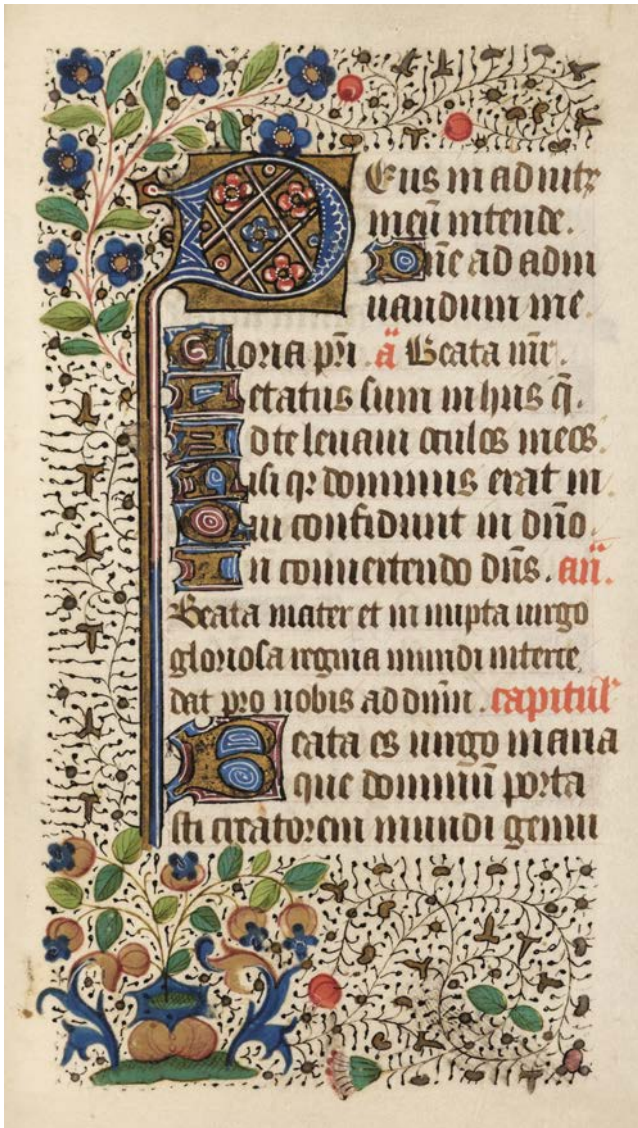 Deus in adiutꝝ
meū intende.
Dn̄e ad adiu
uandum me.
Gloria pr̄i. a̋ Beata mr̄.
Letatus sum in hiis q̄.
Ad te leuaui oculos meos.
Nisi qꝛ dominus erat in
Qui confidunt in dn̄o.
In conuertendo dn̄s. an̄.
Beata mater et in nupta uirgo
gloriosa regina mundi interce
dat pro nobis ad dn̄m. capitul'
Beata es uirgo maria
que dominū porta
sti creatorem mundi genui